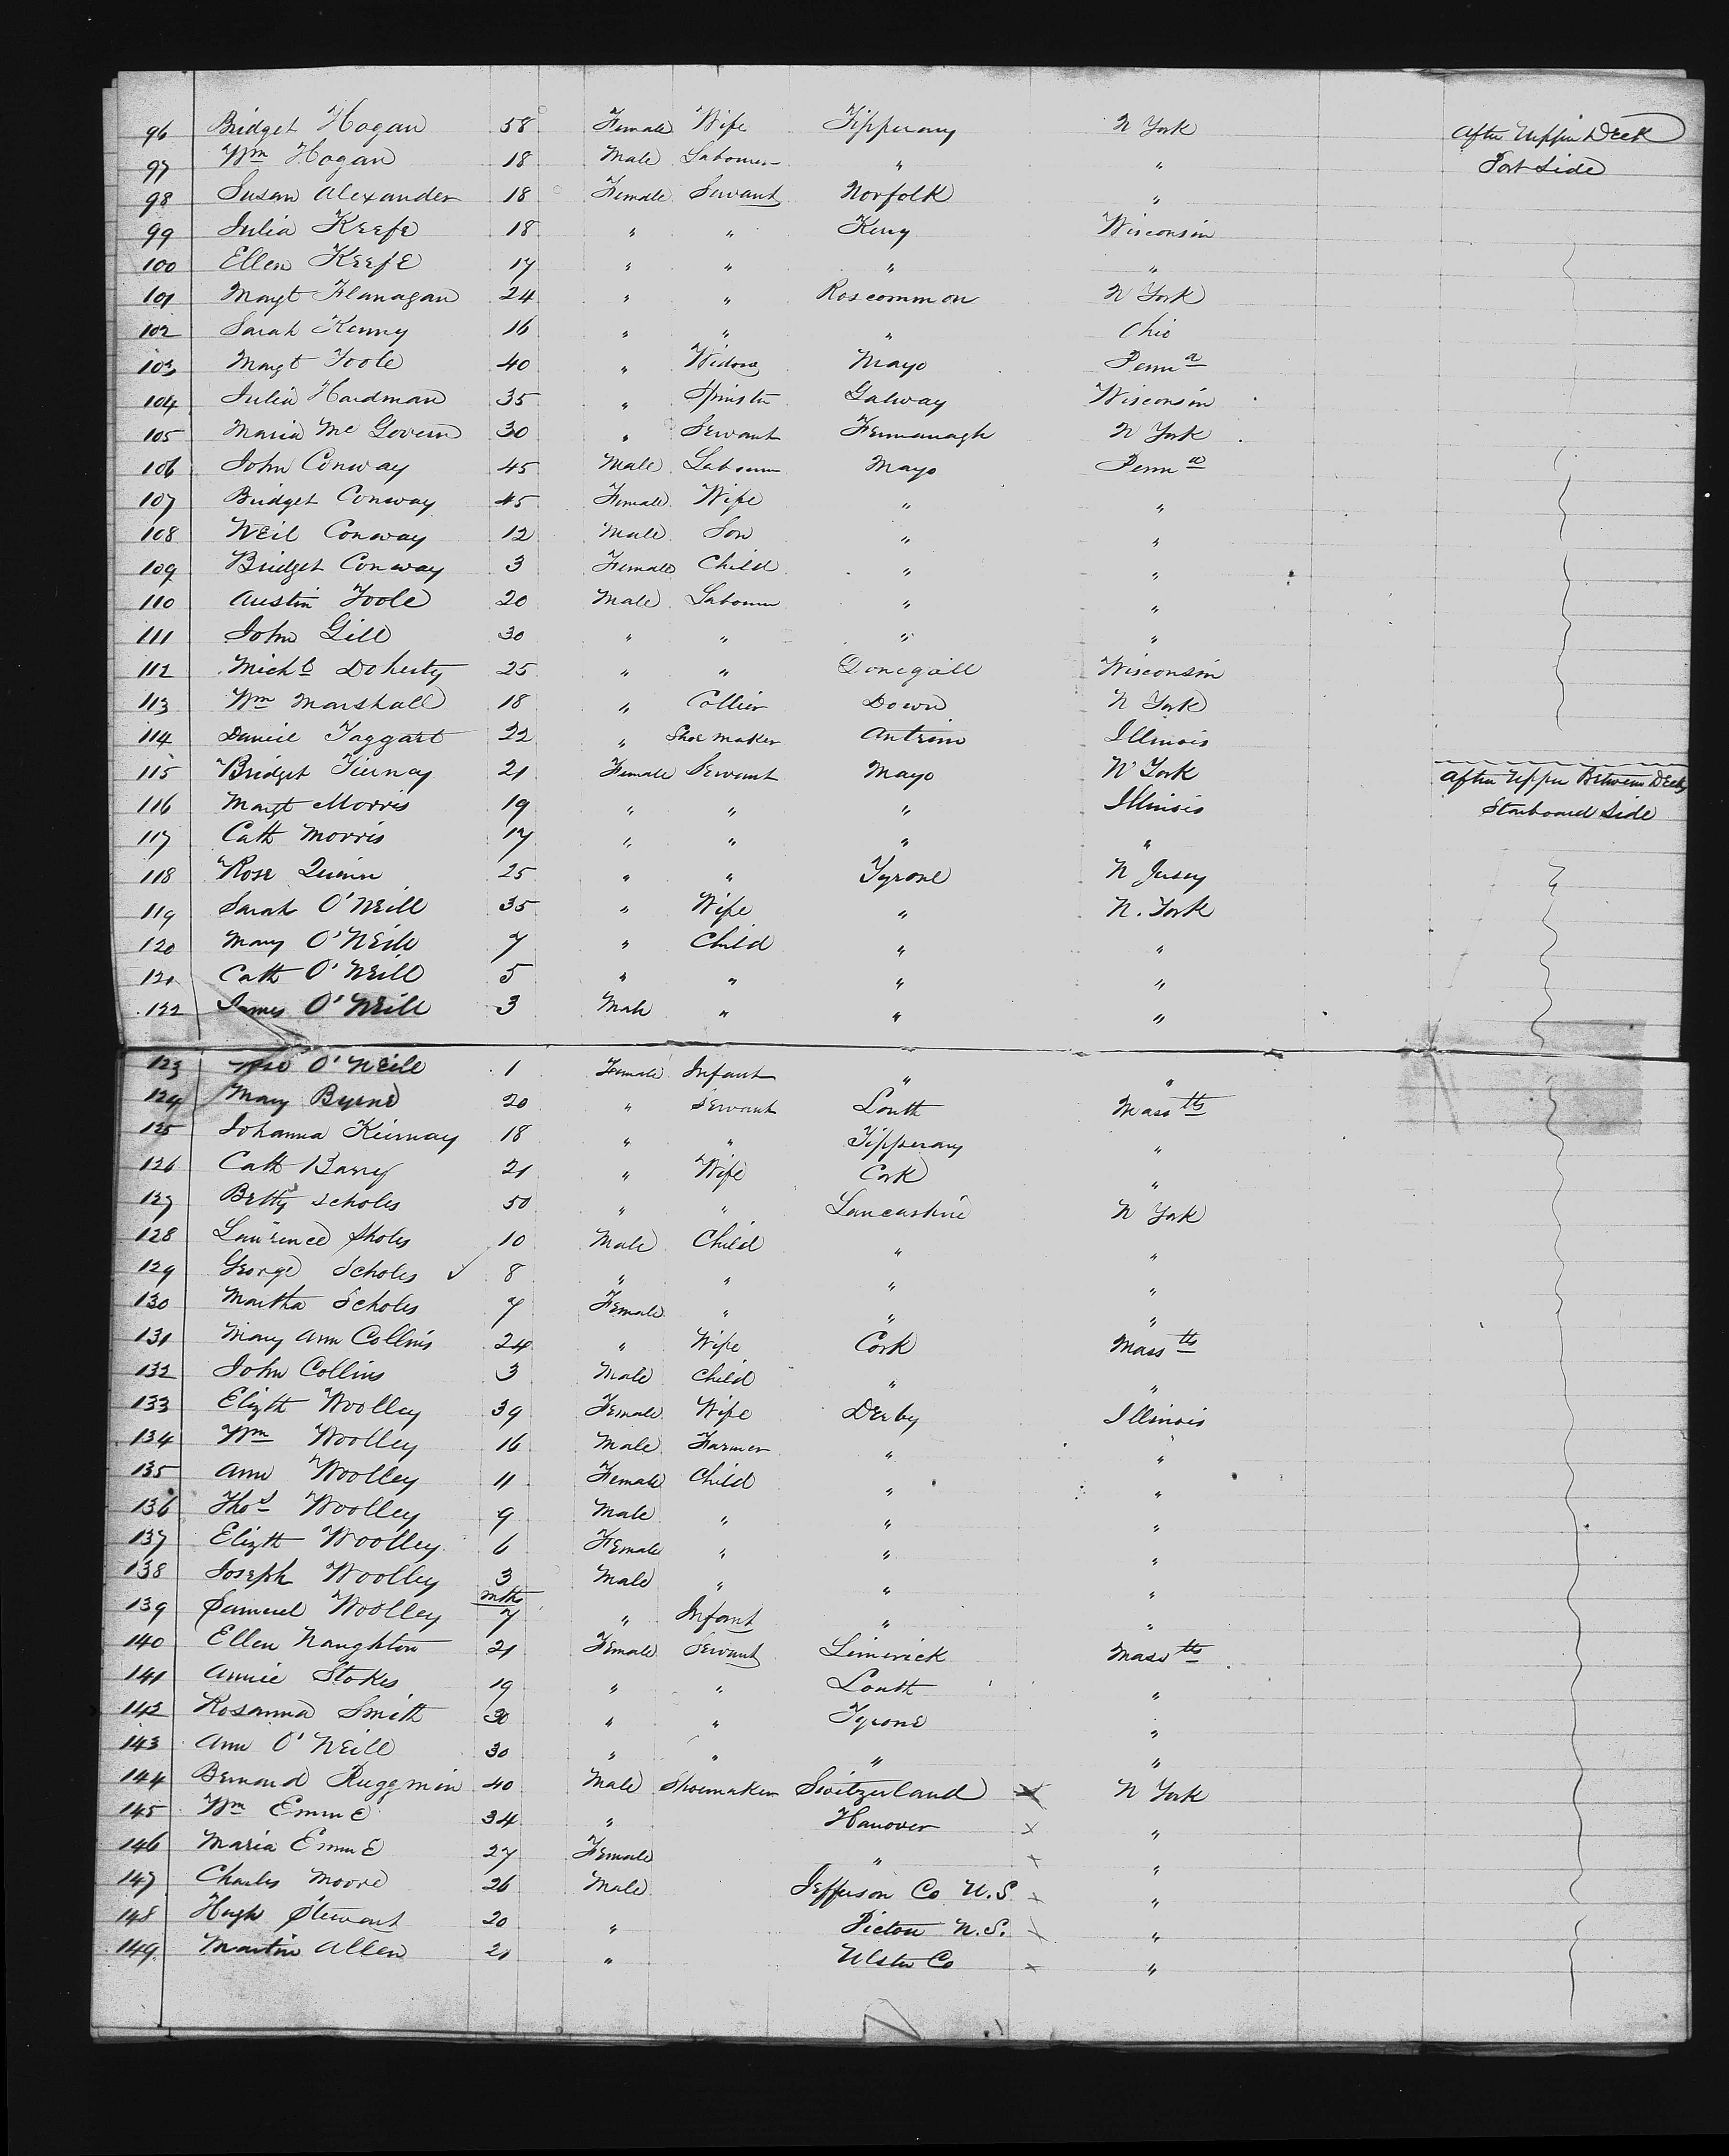 96 Bridget Hogan 58 Female Wife Tipperary N York After Upper Deck
97 Wm Hogan 18 Male Labourer " " Port Side
98 Susan Alexander 18 Female Servant Norfolk "
99 Julia Keefe 18 " " Kerry Wisconsin
100 Ellen Keefe 17 " " " "
101 Margt Flanagan 24 " " Roscommon N York
102 Sarah Kenny 16 " " " Ohio
103 Margt Toole 40 " Widow Mayo Penna
104 Julia Hardman 35 " Spinster Galway Wisconsin
105 Maria McGovern 30 " Servant Fermanagh N York
106 John Conway 45 Male Labourer Mayo Penna
107 Bridget Conway 45 Female Wife " "
108 Neil Conway 12 Male Son " "
109 Bridget Conway 3 Female Child " "
110 Austin Toole 20 Male Labourer " "
111 John Gill 30 " " " "
112 Michl Doherty 25 " " Donegall Wisconsin
113 Wm Marshall 18 " Collier Down N York
114 Daniel Taggart 22 " Shoe maker Antrim Illinois
115 Bridget Tiernay 21 Female Servant Mayo N York After Upper Between Decks
116 Margt Morris 19 " " " Illinois Starboard Side
117 Cath Morris 17 " " " "
118 Rose Quinn 25 " " Tyrone N Jersey
119 Sarah O'Neill 35 " Wife " N. York
120 Mary O'Neill 7 " Child " "
121 Cath O'Neill 5 " " " "
122 James O'Neill 3 Male " " "
123 O'Neill 1 Female Infant " "
124 Mary Byrne 20 " Servant Louth Masstts
125 Johanna Kiernay 18 " " Tipperary "
126 Cath Barry 21 " Wife Cork "
127 Betty Scholes 50 " " Lancashire N York
128 Laurence Sholes 10 Male Child " "
129 George Scholes ✓ 8 " " " "
130 Martha Scholes 7 Female " " "
131 Mary Ann Collins 24 " Wife Cork Masstts
132 John Collins 3 Male Child " "
133 Elizth Woolley 39 Female Wife Derby Illinois
134 Wm Woolley 16 Male Farmer " "
135 Ann Woolley 11 Female Child " "
136 Thos Woolley 9 Male " " "
137 Elizth Woolley 6 Female " " "
138 Joseph Woolley 3 Male " " "
139 Samuel Woolley mths 7 " Infant " "
140 Ellen Naughton 21 Female Servant Limerick Masstts
141 Annie Stokes 19 " " Louth "
142 Rosanna Smith 30 " " Tyrone "
143 Ann O'Neill 30 " " " "
144 Bernard Ruggmin 40 Male Shoemaker Switzerland x N York
145 Wm Emme 34 " Hanover x "
146 Maria Emme 27 Female " x "
147 Charles Moore 26 Male Jefferson Co U.S. x "
148 Hugh Stewart 20 " Pictou N.S. x "
149 Martin Allen 21 " Ulster Co x "